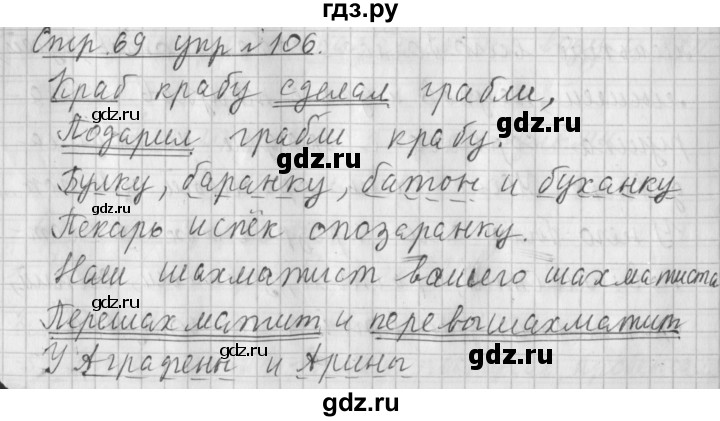 гдз.ру
Стр. 69 упр №106.
Краб крабу сделал грабли,
gdz.ru
gdz.ru
Подарил грабли крабу.
gdz.ru
Булку, баранку, батон и буханку
gdz.ru
gdz.ru
Пекарь испёк спозаранку.
Наш шахматист вашего шахматиста
gdz.ru
gdz.ru
Перешахматит и перевышахматит
gdz.ru
gdz.ru
У Аграфены и Арины
gdz.ru